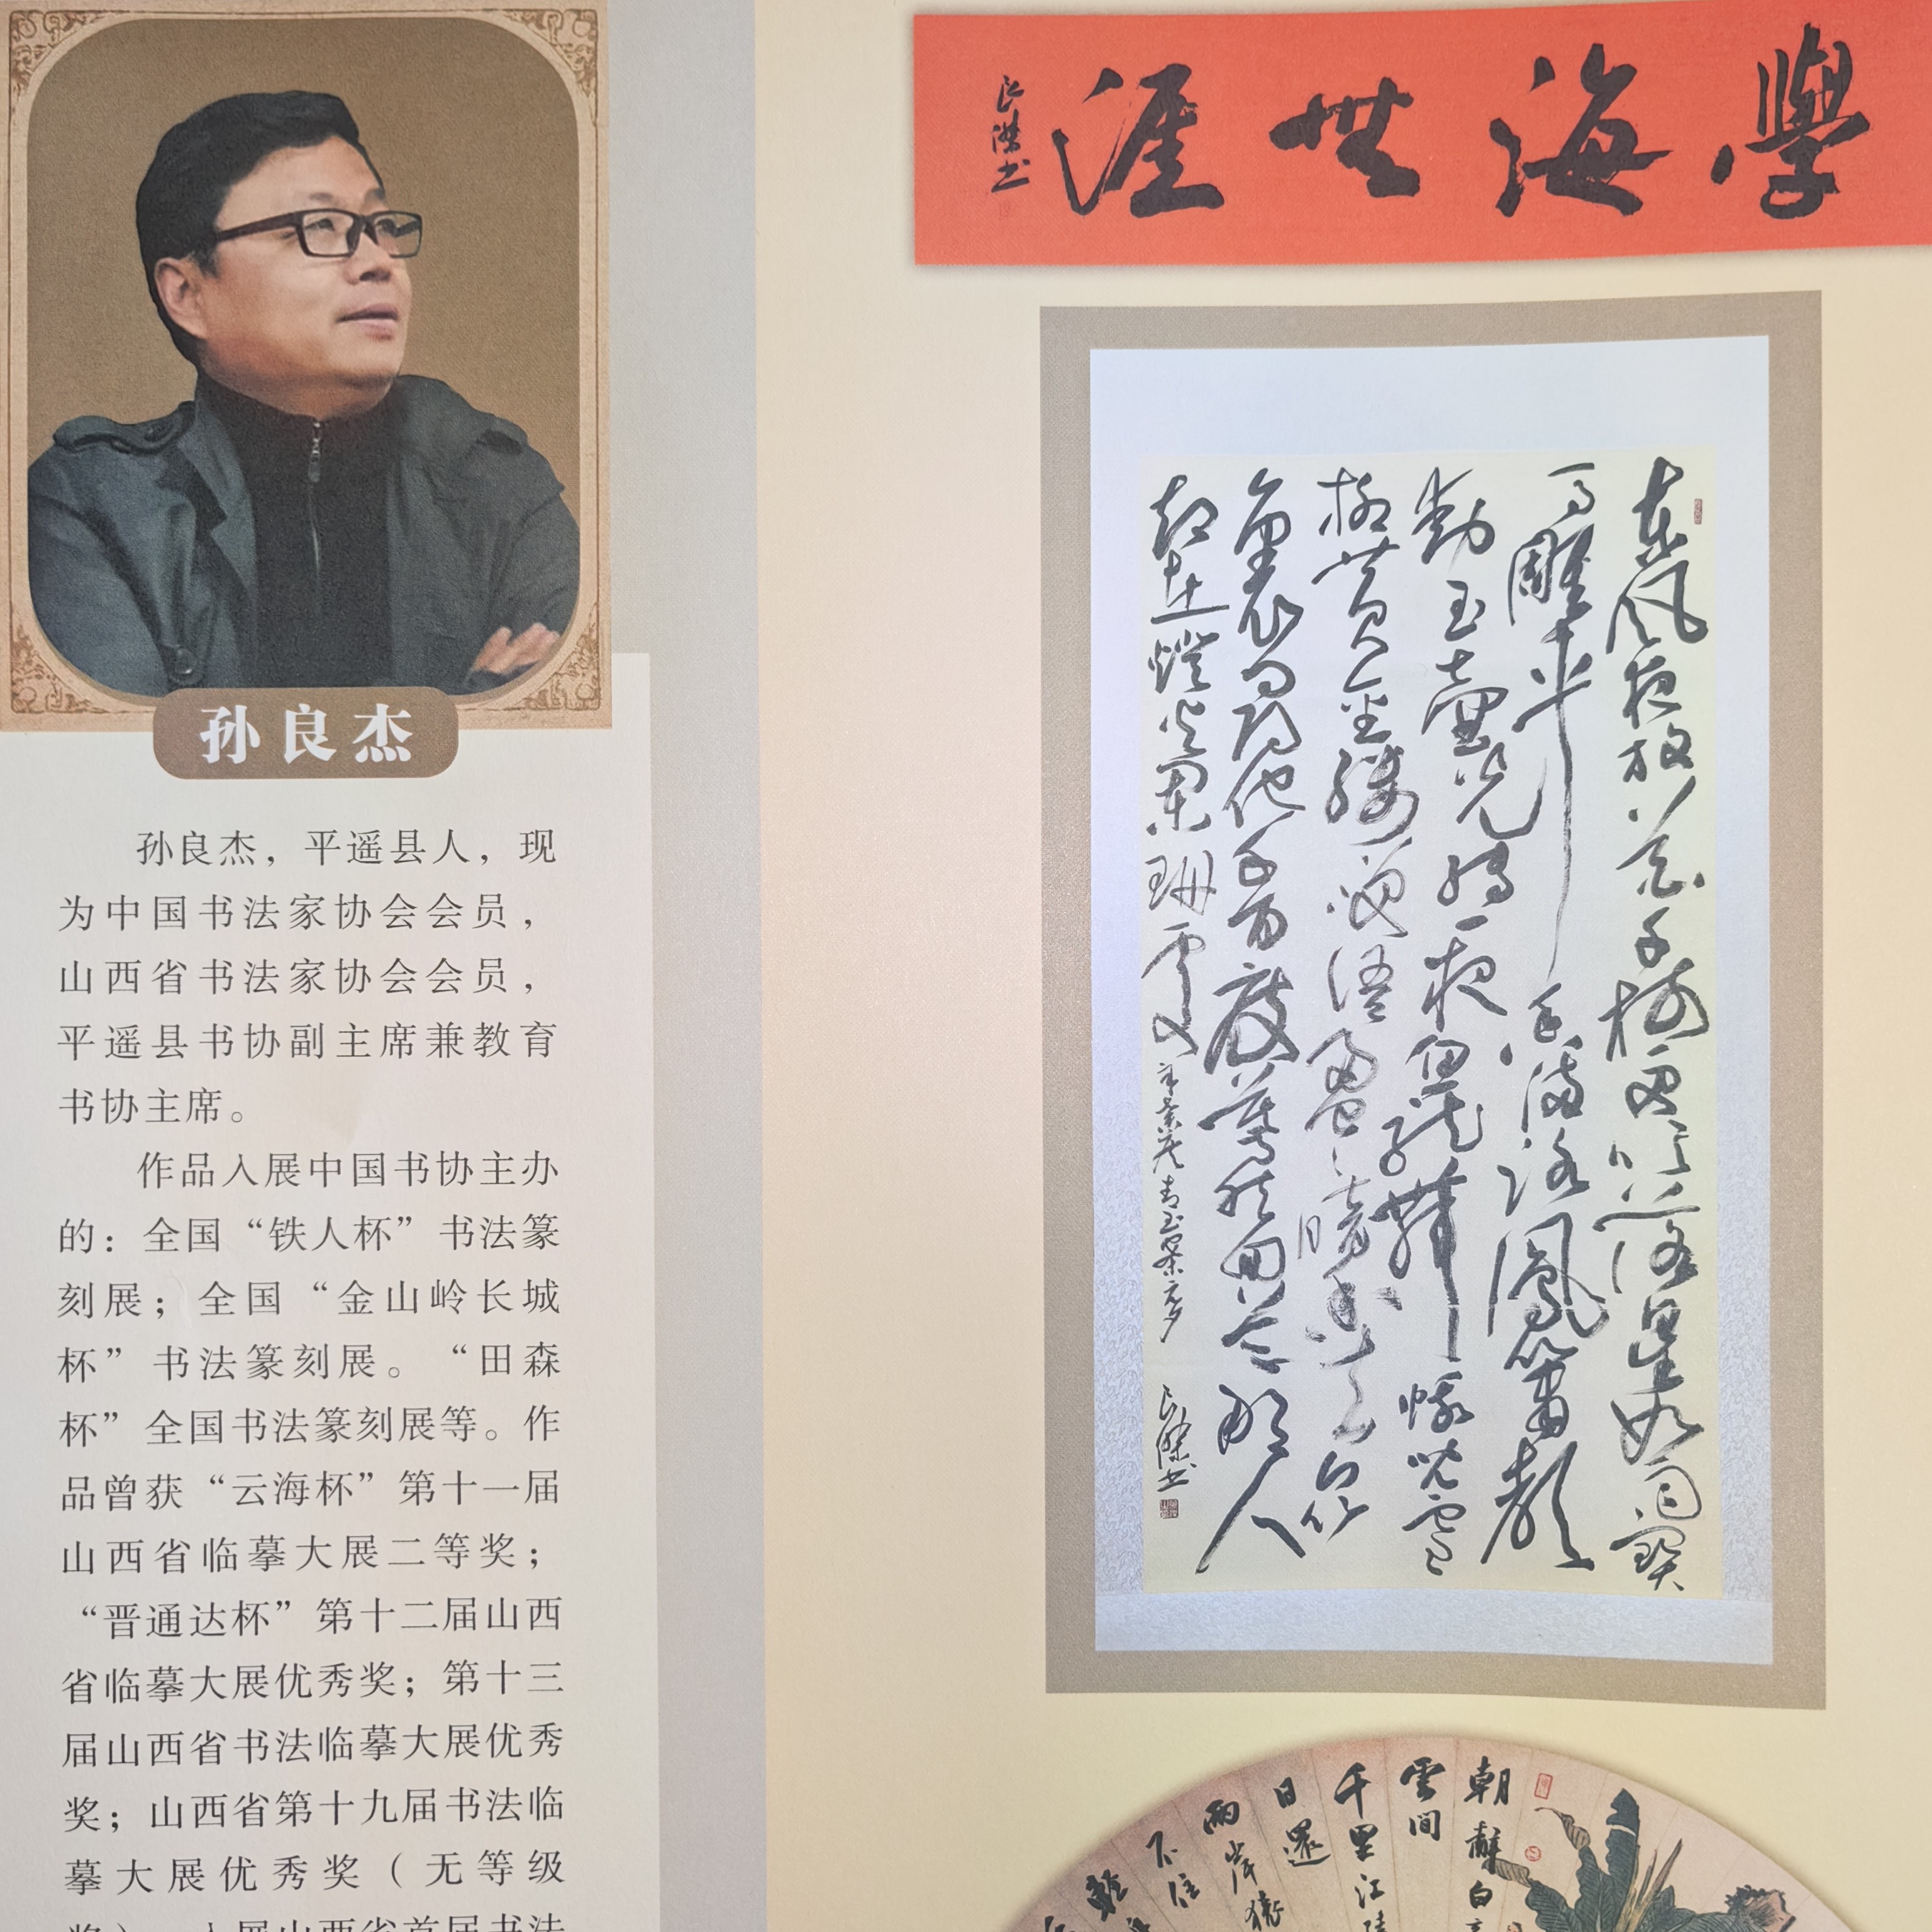 孙良杰
孙良杰，平遥县人，现
为中国书法家协会会员，
山西省书法家协会会员，
平遥县书协副主席兼教育
书协主席。
作品入展中国书协主办
的：全国“铁人杯”书法篆
刻展；全国“金山岭长城
杯”书法篆刻展。“田森
杯”全国书法篆刻展等。作
品曾获“云海杯”第十一届
山西省临摹大展二等奖；
“晋通达杯”第十二届山西
省临摹大展优秀奖；第十三
届山西省书法临摹大展优秀
奖；山西省第十九届书法临
摹大展优秀奖（无等级
奖）。入展山西省首届书法
學海無涯
良傑书
東风夜放花千樹更吹落星如雨寳
馬雕車香滿路鳳簫聲
動玉壷光轉一夜魚龍舞蛾兒雪
柳黄金縷笑語盈盈暗香去众
里尋他千百度驀然回首那人
却在燈火闌珊處
辛棄疾青玉案元夕
良傑书
朝辭白
雲間
千里江陵
日還
兩岸猿
不住
輕